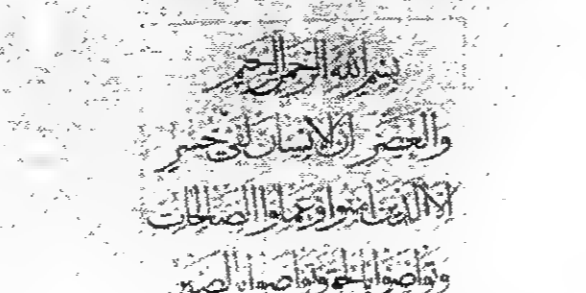 بسم الله الرحمن الرحيم
والعصر ان الانسان لفي خسر
الا الذين امنوا وعملوا الصالحات
وتواصوا بالحق وتواصوا بالصبر